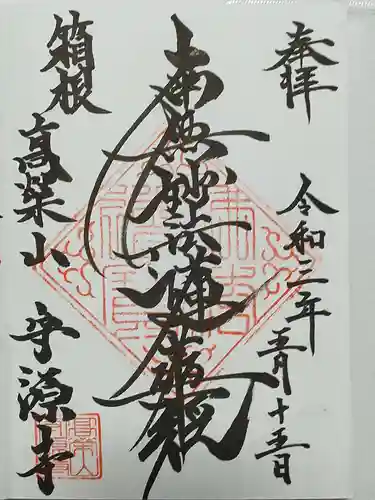 奉拝
令和三年
五月十五日
南無妙法蓮華経
箱根
高栄山
守源寺